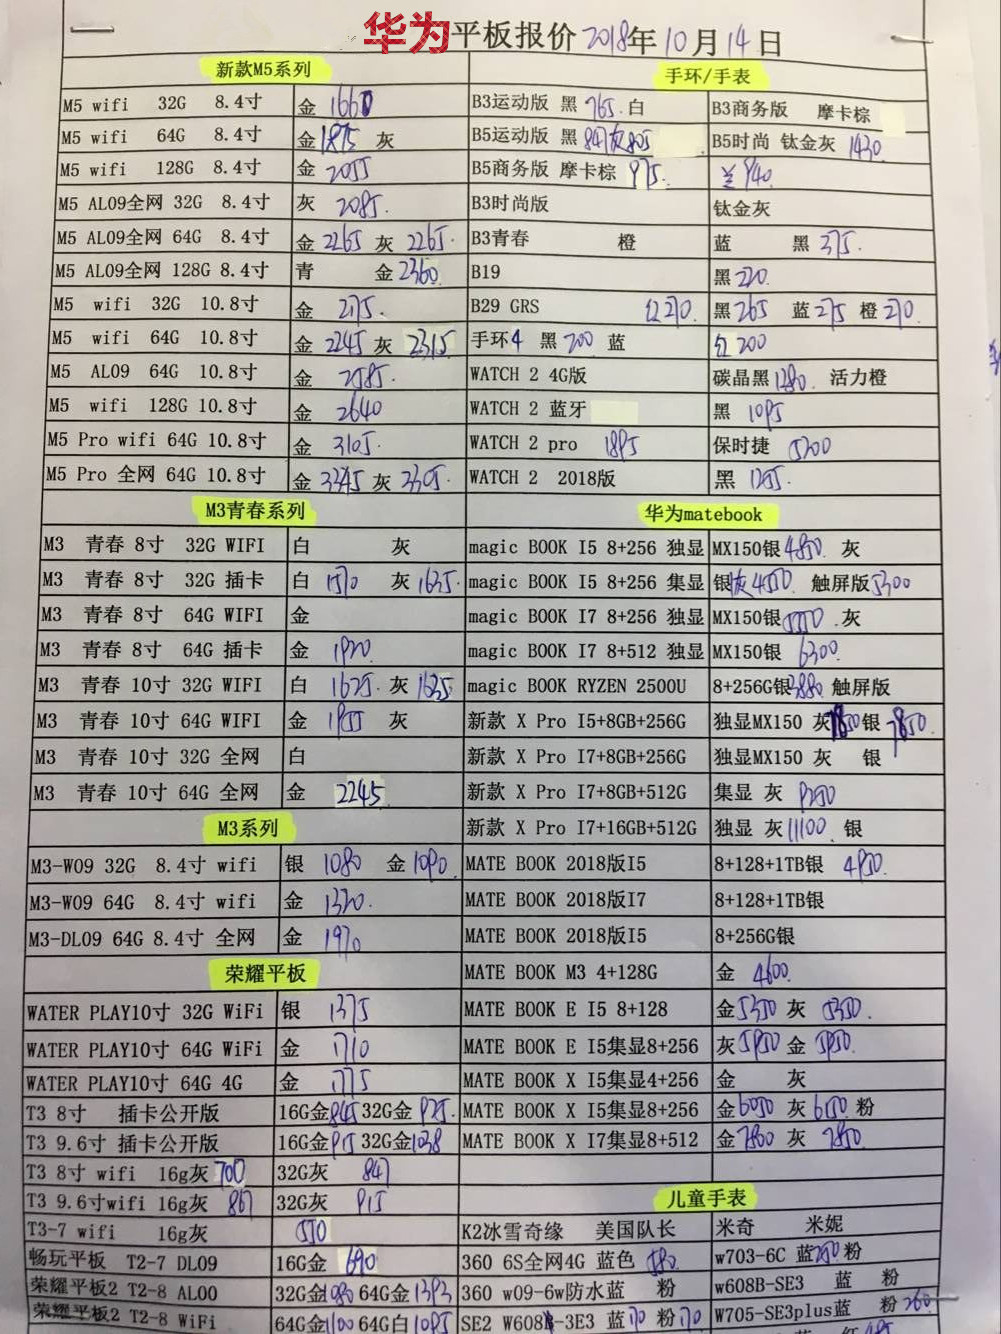 华为平板报价 2018年10月14日
新款M5系列 手环/手表
M5 wifi 32G 8.4寸 金 1660 B3运动版 黑 765. 白 B3商务版 摩卡棕
M5 wifi 64G 8.4寸 金 1875 灰 B5运动版 黑 847 灰 805 B5时尚 钛金灰 1430
M5 wifi 128G 8.4寸 金 2055 B5商务版 摩卡棕 975. 940.
M5 AL09全网 32G 8.4寸 灰 2085. B3时尚版 钛金灰
M5 AL09全网 64G 8.4寸 金 2265 灰 2265. B3青春 橙 蓝 黑 375.
M5 AL09全网 128G 8.4寸 青 金 2360 B19 黑 220
M5 wifi 32G 10.8寸 金 2175. B29 GRS 红 270. 黑 265 蓝 275 橙 270
M5 wifi 64G 10.8寸 金 2245 灰 2315 手环4 黑 200 蓝 红 200
M5 AL09 64G 10.8寸 金 2585. WATCH 2 4G版 碳晶黑 1280. 活力橙
M5 wifi 128G 10.8寸 金 2640 WATCH 2 蓝牙 黑 1095
M5 Pro wifi 64G 10.8寸 金 3105. WATCH 2 pro 1895 保时捷 5200
M5 Pro 全网 64G 10.8寸 金 3345 灰 3305. WATCH 2 2018版 黑 1255.
M3青春系列 华为matebook
M3 青春 8寸 32G WIFI 白 灰 magic BOOK I5 8+256 独显 MX150银 4850. 灰
M3 青春 8寸 32G 插卡 白 1570 灰 1635. magic BOOK I5 8+256 集显 银灰 4550. 触屏版 5300
M3 青春 8寸 64G WIFI 金 magic BOOK I7 8+256 独显 MX150银 5550 .灰
M3 青春 8寸 64G 插卡 金 1920. magic BOOK I7 8+512 独显 MX150银 6300
M3 青春 10寸 32G WIFI 白 1625. 灰 1635 magic BOOK RYZEN 2500U 8+256G银 3880 触屏版
M3 青春 10寸 64G WIFI 金 1955 灰 新款 X Pro I5+8GB+256G 独显MX150 灰 7850 银 7850.
M3 青春 10寸 32G 全网 白 新款 X Pro I7+8GB+256G 独显MX150 灰 银
M3 青春 10寸 64G 全网 金 2245 新款 X Pro I7+8GB+512G 集显 灰 9250
M3系列 新款 X Pro I7+16GB+512G 独显 灰 11100 银
M3-W09 32G 8.4寸 wifi 银 1080 金 1090. MATE BOOK 2018版I5 8+128+1TB银 4950.
M3-W09 64G 8.4寸 wifi 金 1320. MATE BOOK 2018版I7 8+128+1TB银
M3-DL09 64G 8.4寸 全网 金 1970 MATE BOOK 2018版I5 8+256G银
荣耀平板 MATE BOOK M3 4+128G 金 4600.
WATER PLAY10寸 32G WiFi 银 1375 MATE BOOK E I5 8+128 金 5350 灰 5350.
WATER PLAY10寸 64G WiFi 金 1710 MATE BOOK E I5集显8+256 灰 5950 金 5950.
WATER PLAY10寸 64G 4G 金 1775 MATE BOOK X I5集显4+256 金 灰
T3 8寸 插卡公开版 16G金 845 32G金 925. MATE BOOK X I5集显8+256 金 6050 灰 6150 粉
T3 9.6寸 插卡公开版 16G金 915 32G金 1038 MATE BOOK X I7集显8+512 金 7800 灰 7850.
T3 8寸 wifi 16g灰 700 32G灰 847
T3 9.6寸wifi 16g灰 867 32G灰 915 儿童手表
T3-7 wifi 16g灰 550 K2冰雪奇缘 美国队长 米奇 米妮
畅玩平板 T2-7 DL09 16G金 690 360 6S全网4G 蓝色 580. w703-6C 蓝 250 粉
荣耀平板2 T2-8 AL00 32G金 980 64G金 1393 360 w09-6w防水蓝 粉 w608B-SE3 蓝 粉
荣耀平板2 T2-8 WiFi 64G金 1100 64G白 1095 SE2 W608-3E3 蓝 170 粉 170 W705-SE3plus蓝 粉 260